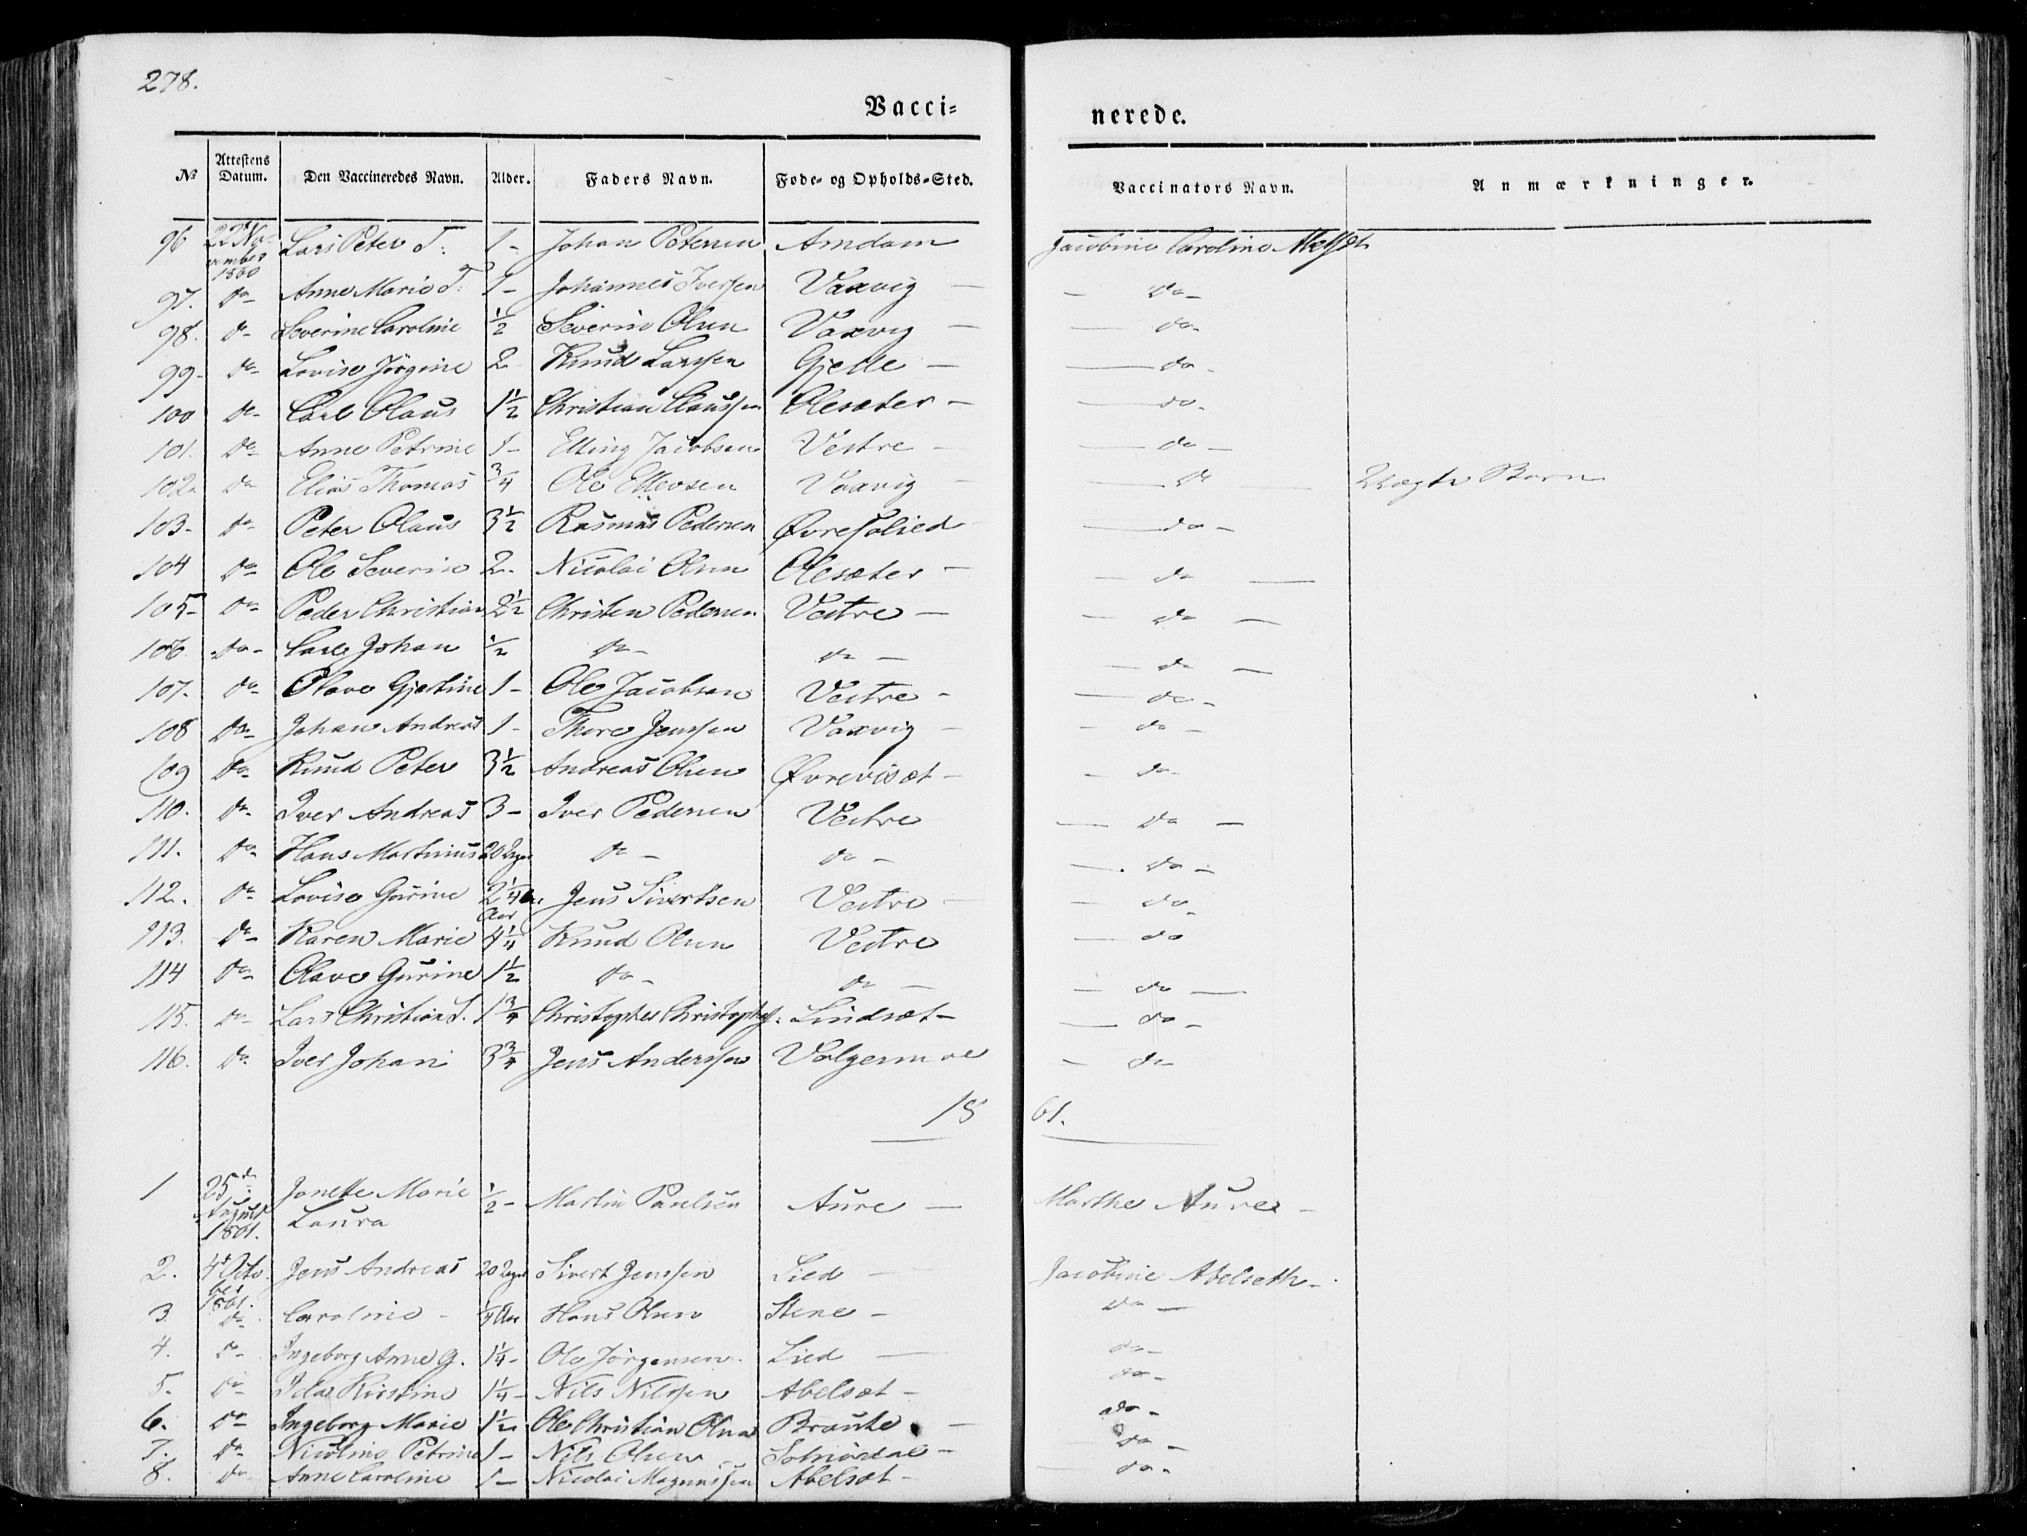 278.
Vacci= nerede.
No Attestens Datum. Den Vaccineredes Navn. Alder. Faders Navn. Fode= og Opholds=Sted. Vaccinators Navn. Anmærkninger.
96 22d November 1860 Lars Peter T: 1- Johan Petersen Amdam Jacobine Caroline
97. do- Anne Marie T: 1- Johannes Iversen Vaxvig - - do-
98. do- Severine Caroline 1/2 Severin Olsen Vaxvig - - do-
99- do- Lovise Jörgine 2 Knud Larssen Gjelle - - do-
100 do- Carl Olaus 1 1/2 Christian Claussen Olesæter - - do-
101. do- Anne Petrine 1- Elling Jacobsen Vestre - - do -
102. do Elias Thomas 3/4 Ole Ellevsen Vaxvig - - do - Uægte Barn
103- do- Peter Olaus 3 1/2 Rasmus Pedersen Øvre - do -
104 do- Ole Severin 2- Nicolai Olsen Olesæter - - do -
105- do- Peder Christian 2 1/2 Christen Pedersen Vestre - - do -
106. do- Carl Johan 1/2 do- do - - do -
107- do- Olave Gjertine 1- Ole Jacobsen Vestre - - do -
108 do- Johan Andreas 1- Thore Jenssen Vaxvig - - do -
109 do- Knud Peter 3 1/2 Andreas Olsen Øvrevisæt - - do-
110. do- Iver Andreas 3- Iver Pedersen Vestre - do -
111. do- Hans Martinus 20 Uger do - do - - do -
112. do- Lovise Gurine 2 1/4 Aar Jens Sivertsen Vestre - - do -
113. do- Karen Marie 4 1/4 Knud Olsen Vestre - do
114 do- Olave Gurine 1 1/2 do- do - - do -
115. do- Lars Christian S. 1 3/4 Christopher Christophs: Lindsæt - - do -
116. do- Iver Johan 3 3/4 Jens Anderssen Valgermoe - do
18 61.
1 25de August 1861. Janette Marie Laura 1/2 - Martin Paulsen Aure - Marthe Aure -
2. 4d October 1861. Jens Andreas 20 Uger Sivert Jenssen Lied - Jacobine Abelseth -
3. do- Caroline - 1/4 Aar Hans Olsen Stene - do -
4. do- Ingeborg Anne G. 1 1/4 - Ole Jörgensen. Lied - do-
5- do- Ida Kirstine 1 1/4 - Nils Nilssen Abelsæt - do -
6. do- Ingeborg Marie 1 1/2 Ole Christian Olsen Braute - do -
7. do- Nicoline Petrine 1- Nils Olsen Solnørdal - do -
8. do- Anne Caroline 1- Nicolai Magnussen Abelsæt - - do-